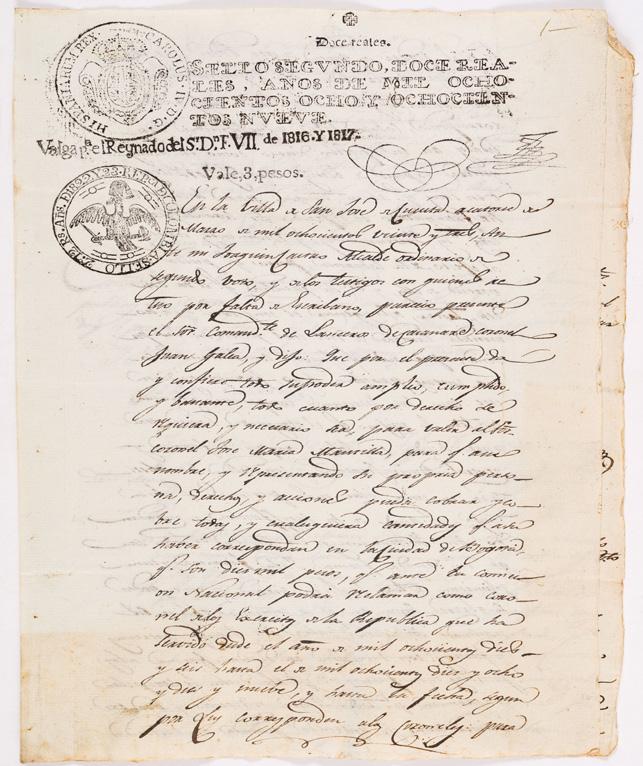 1
Doce reales.
SELLO SEGVNDO, DOCE REA-
LES, AÑOS DE MIL OCHO-
CIENTOS OCHO Y OCHOCIEN-
TOS NUEVE.
HISPANIARUM REX. CAROLUS IV D.G.
Valga pa. el Reynado del Sr. Dn. F. VII. de 1816. Y 1817.
Vale, 3, pesos.
En la Villa de San José de Cucuta a catorce de
Marzo de mil ochocientos veinte y tres, An
te mi Joaquin Castro Alcalde ordinario de
segundo voto, y de los testigos con quienes ac
tuo por falta de Escribano, parecio presente
el Sor. Comandte. de Lanceros de Casanare coronel
Juan Galea, y dijo: Que por el presente da
y confiere todo su poder amplio, cumplido,
y bastante, todo cuanto por derecho se
requiera, y necesario sea, para valer al Sor.
coronel José Maria Mansilla, para q. a su
nombre, y representando su propria perso-
na, derechos y acciones pueda cobrar
todas, y cualesquiera cantidades q. a su
haber correspondan en la Ciudad de Bogotá,
q. son diez mil pesos, q. ante la comici-
on Nacional podrá reclamar como coro-
nel de los Exercitos de la Republica que ha
servido desde el año de mil ochocientos diez
y seis hasta el de mil ochocientos diez y ocho
y diez y nueve, y hasta la fecha, segun
por Ley corresponden a los Coroneles: para